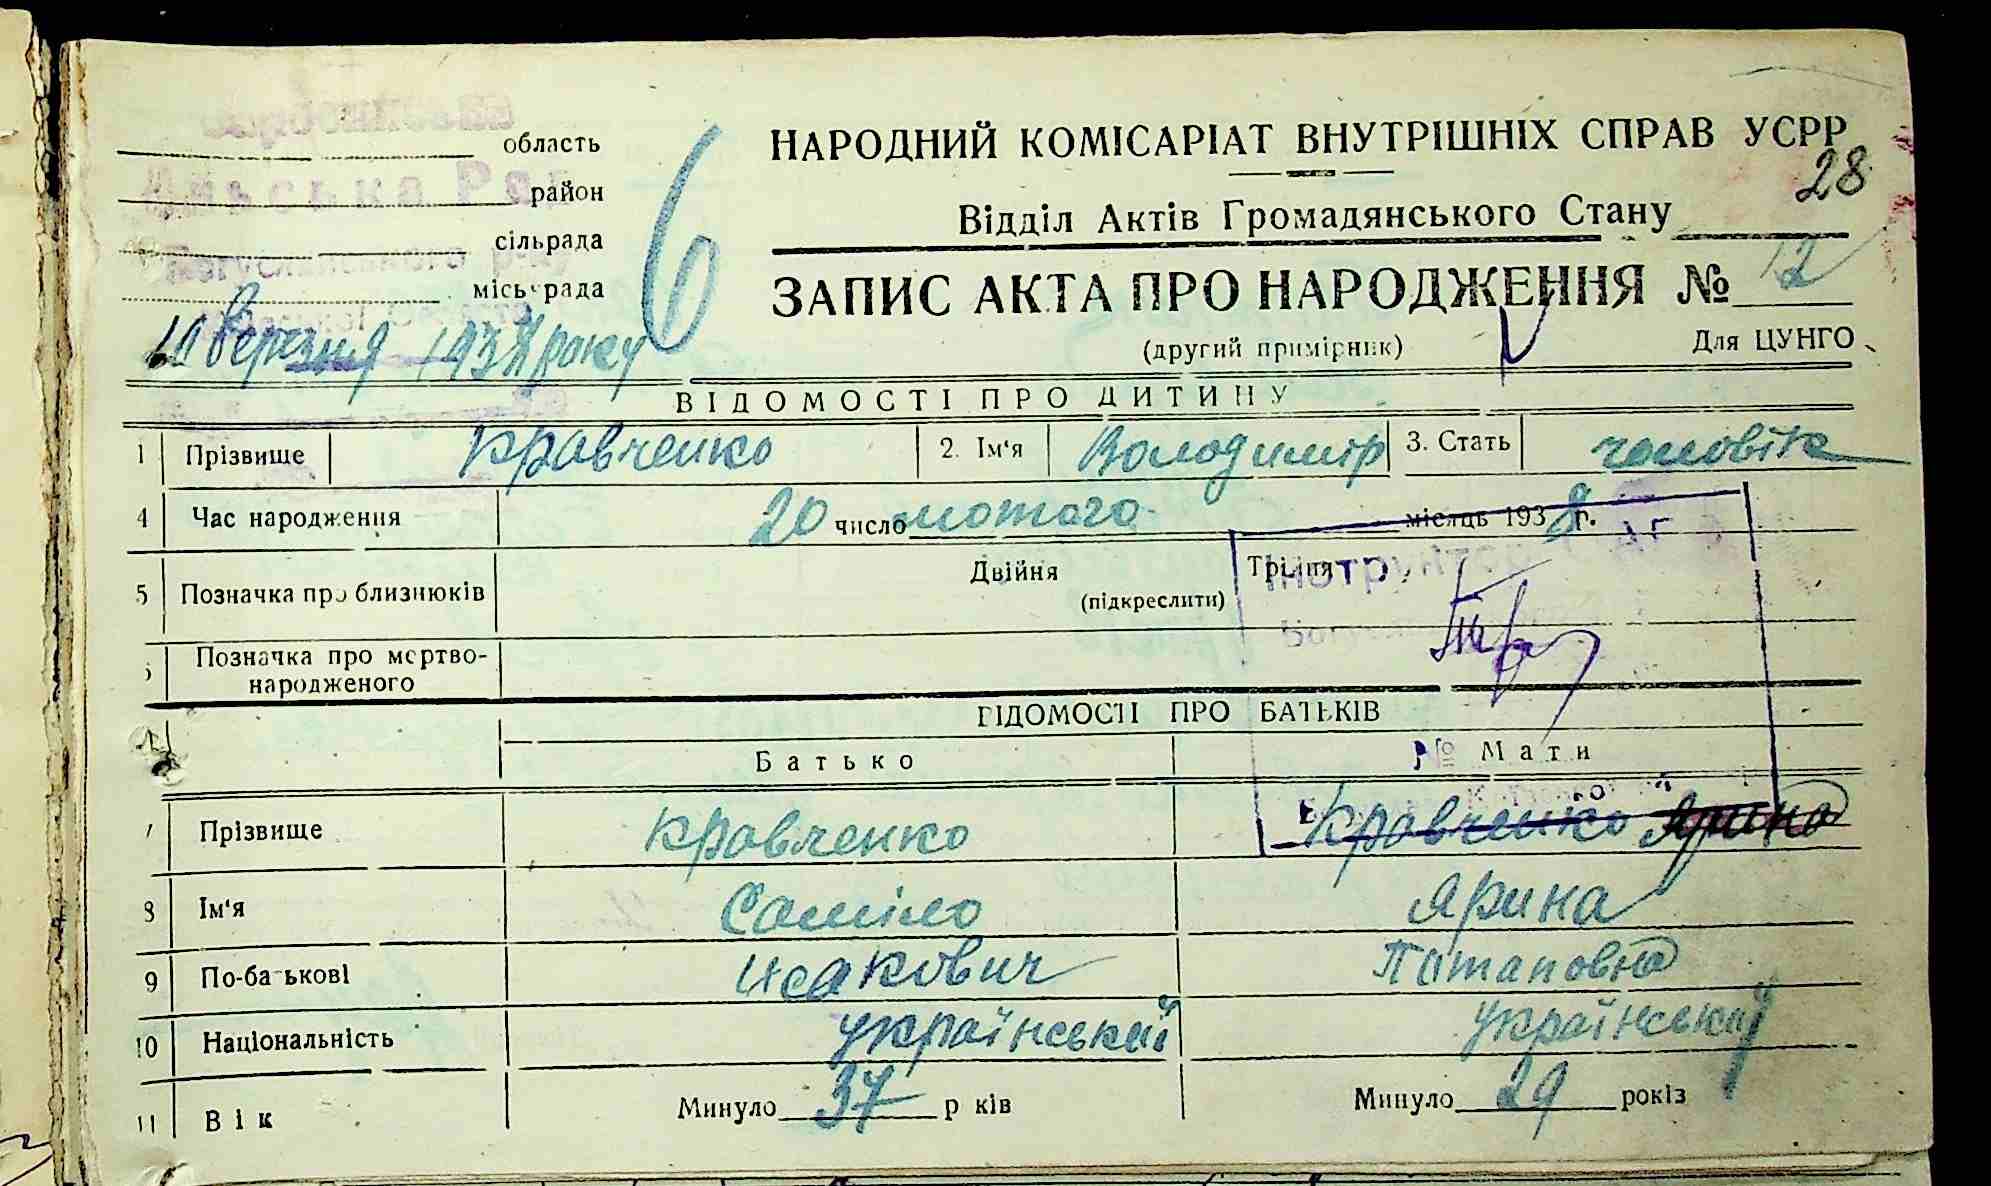 область
район
сільрада
міськрада
6
НАРОДНИЙ КОМІСАРІАТ ВНУТРІШНІХ СПРАВ УСРР
28
Відділ Актів Громадянського Стану
ЗАПИС АКТА ПРО НАРОДЖЕННЯ № 12
(другий примірник) Для ЦУНГО
10 березня 1938 року
ВІДОМОСТІ ПРО ДИТИНУ
1 Прізвище Кравченко 2. Ім'я Володимір 3. Стать чоловік
4 Час народження 20 число лютого місяць 1938 г.
5 Позначка про близнюків Двійня Трійня
(підкреслити)
Позначка про мертво-
народженого
ВІДОМОСТІ ПРО БАТЬКІВ
Батько Мати
7 Прізвище Кравченко Кравченко Ярина
8 Ім'я Саміло Ярина
9 По-батькові Исакович Потаповна
10 Національність український український
11 Вік Минуло 37 р ків Минуло 29 років